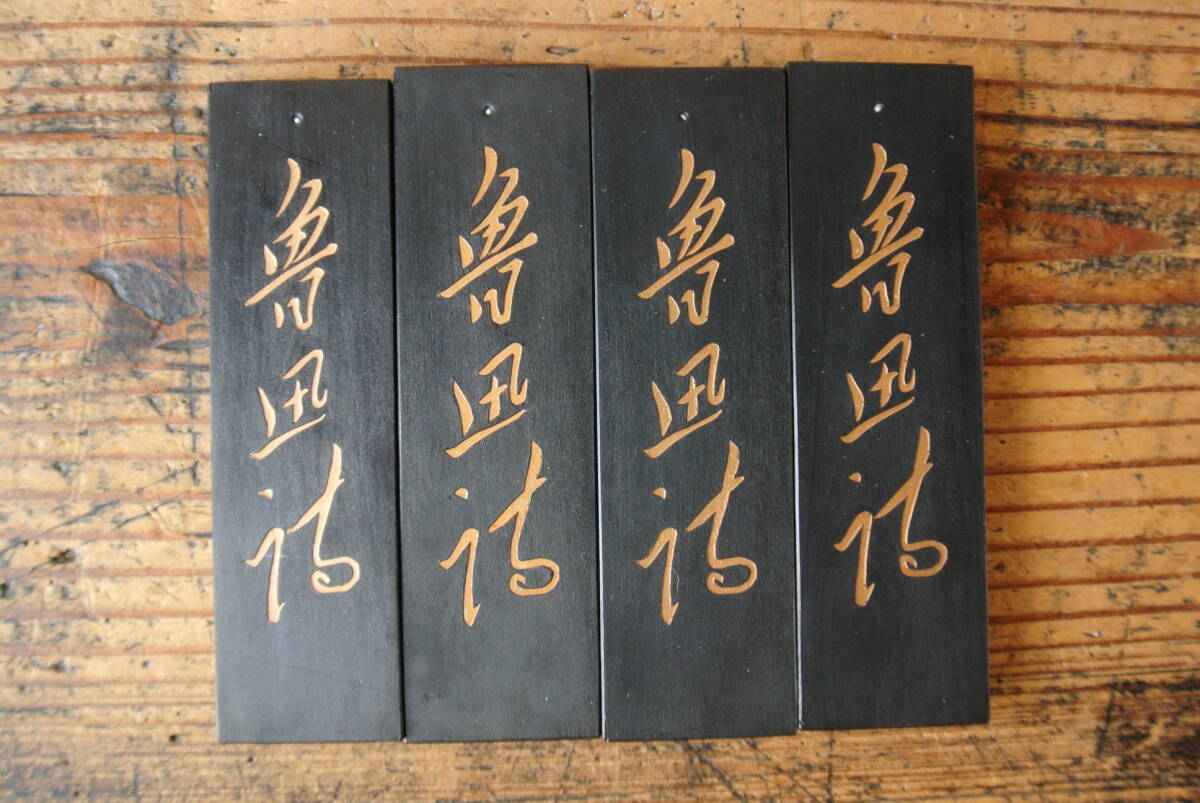 魯迅詩
魯迅詩
魯迅詩
魯迅詩